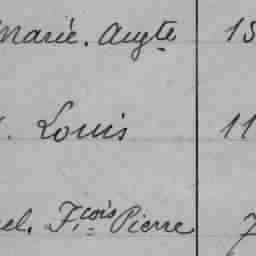 Marie. Augte 15
. Louis 11
el. Fçois Pierre 7